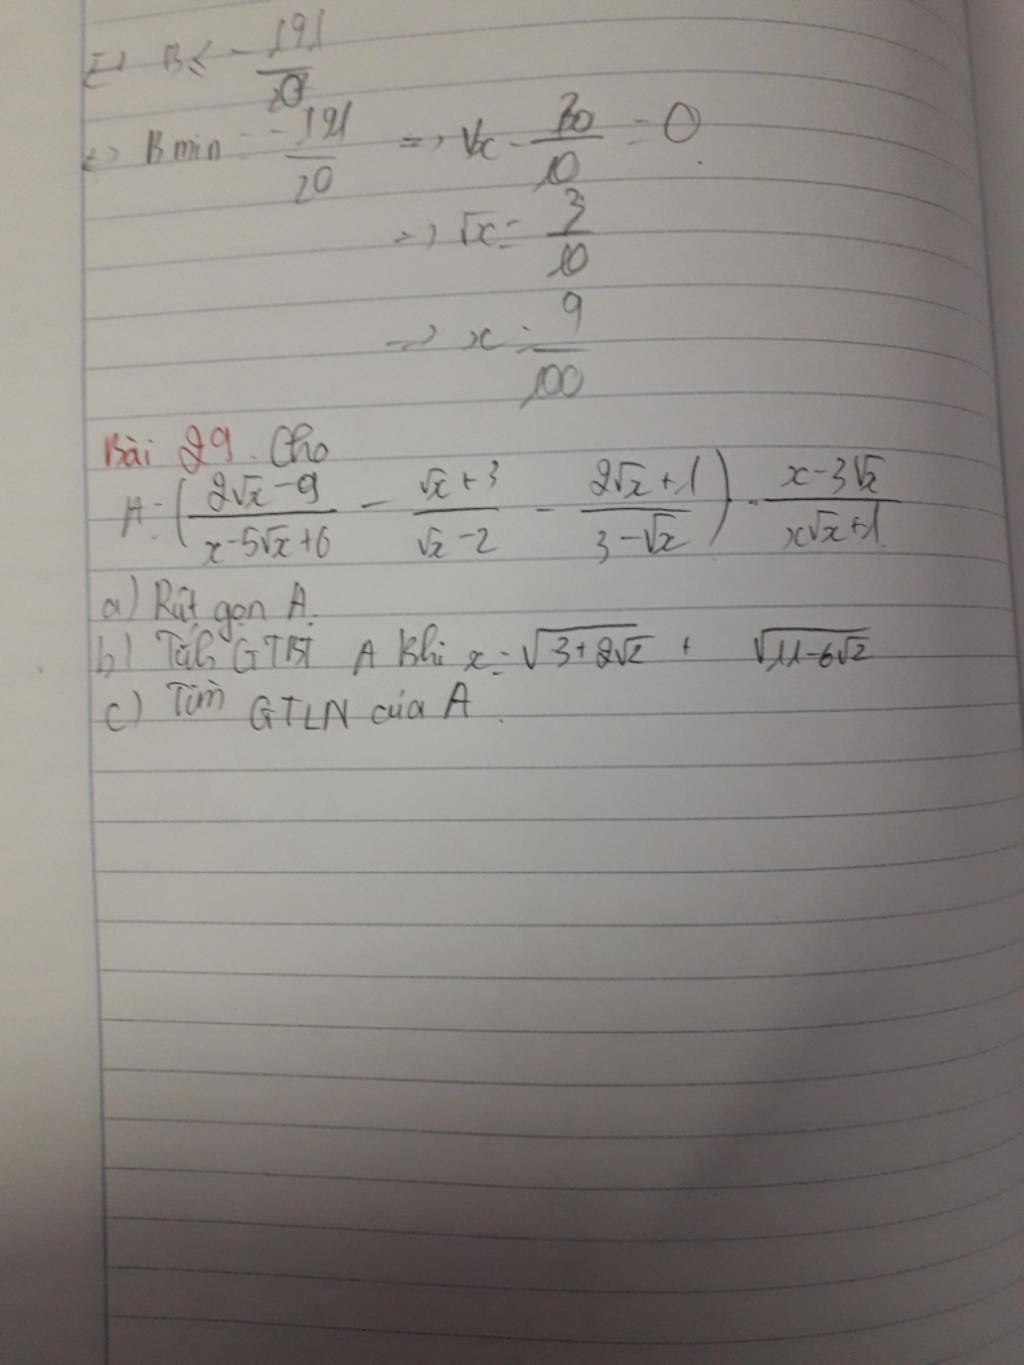 => B ≤ - 191/20
<=> Bmin = -191/20 => √x - 30/10 = 0
=> √x = 3/10
=> x = 9/100
Bài 29. Cho
A = ( (2√x - 9)/(x - 5√x + 6) - (√x + 3)/(√x - 2) - (2√x + 1)/(3 - √x) ) · (x - 3√x)/(x√x + 1)
a) Rút gọn A.
b) Tính GTBT A khi x = √(3 + 2√2) + √(11 - 6√2)
c) Tìm GTLN của A.